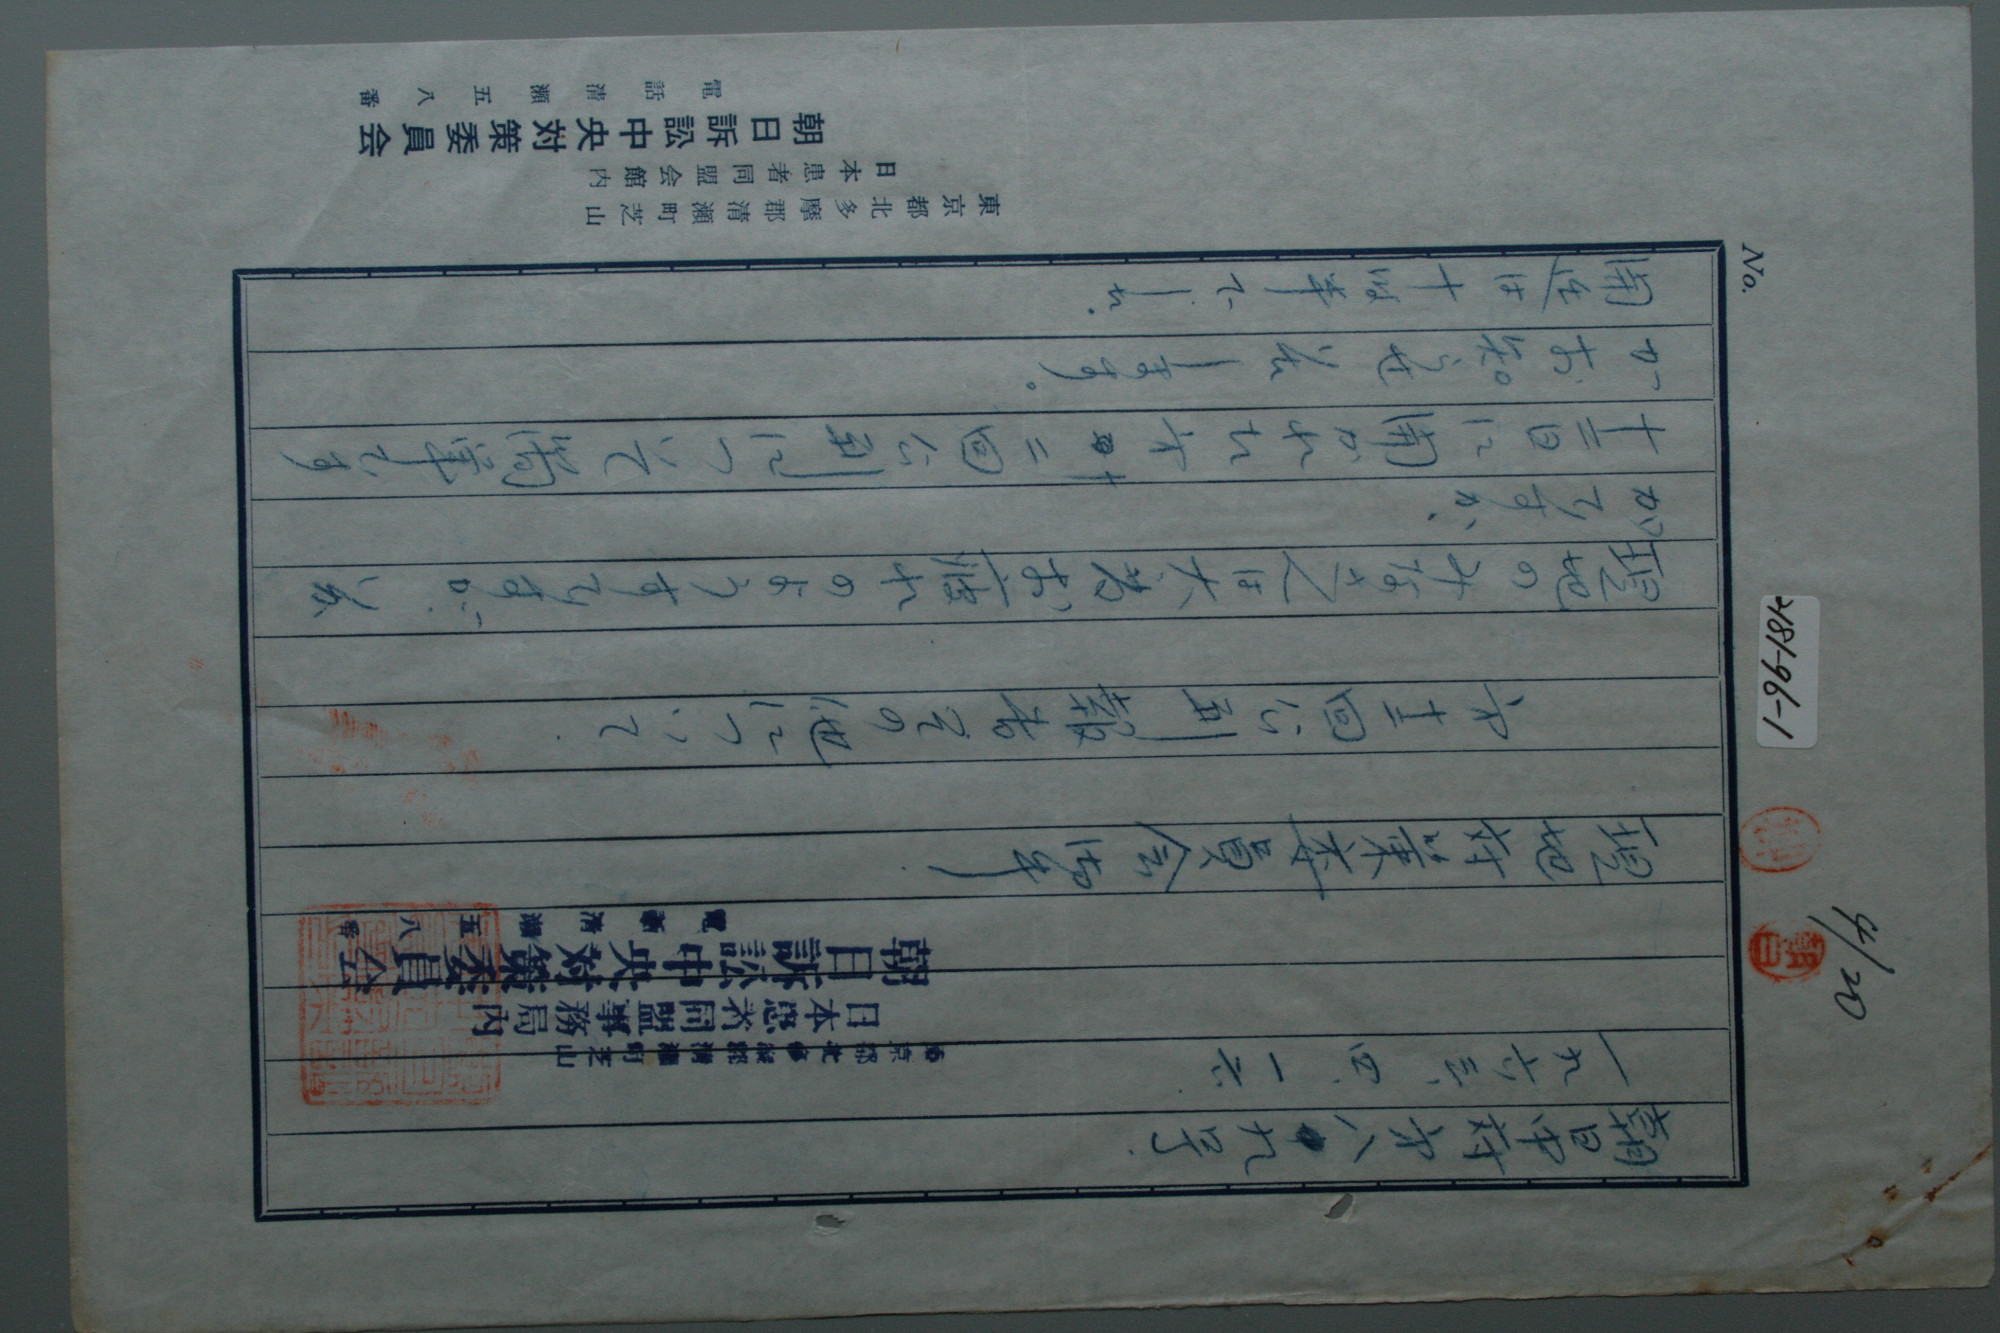 No.
4/20
4181-96-1
朝日中対才八九号
一九六三、四、一六
東京都北多摩郡清瀬町芝山
日本患者同盟事務局内
朝日訴訟中央対策委員会
電話清瀬五八番
現地対策委員会御中
才十二回公判報告その他について
現地のみなさんは大変お疲れのようすですが、
がですか、
十二日に開かれた才十二回公判について簡単です
がお知らせ致します。
開廷は十時半でした。
東京都北多摩郡清瀬町芝山
日本患者同盟会館内
朝日訴訟中央対策委員会
電話清瀬五八番